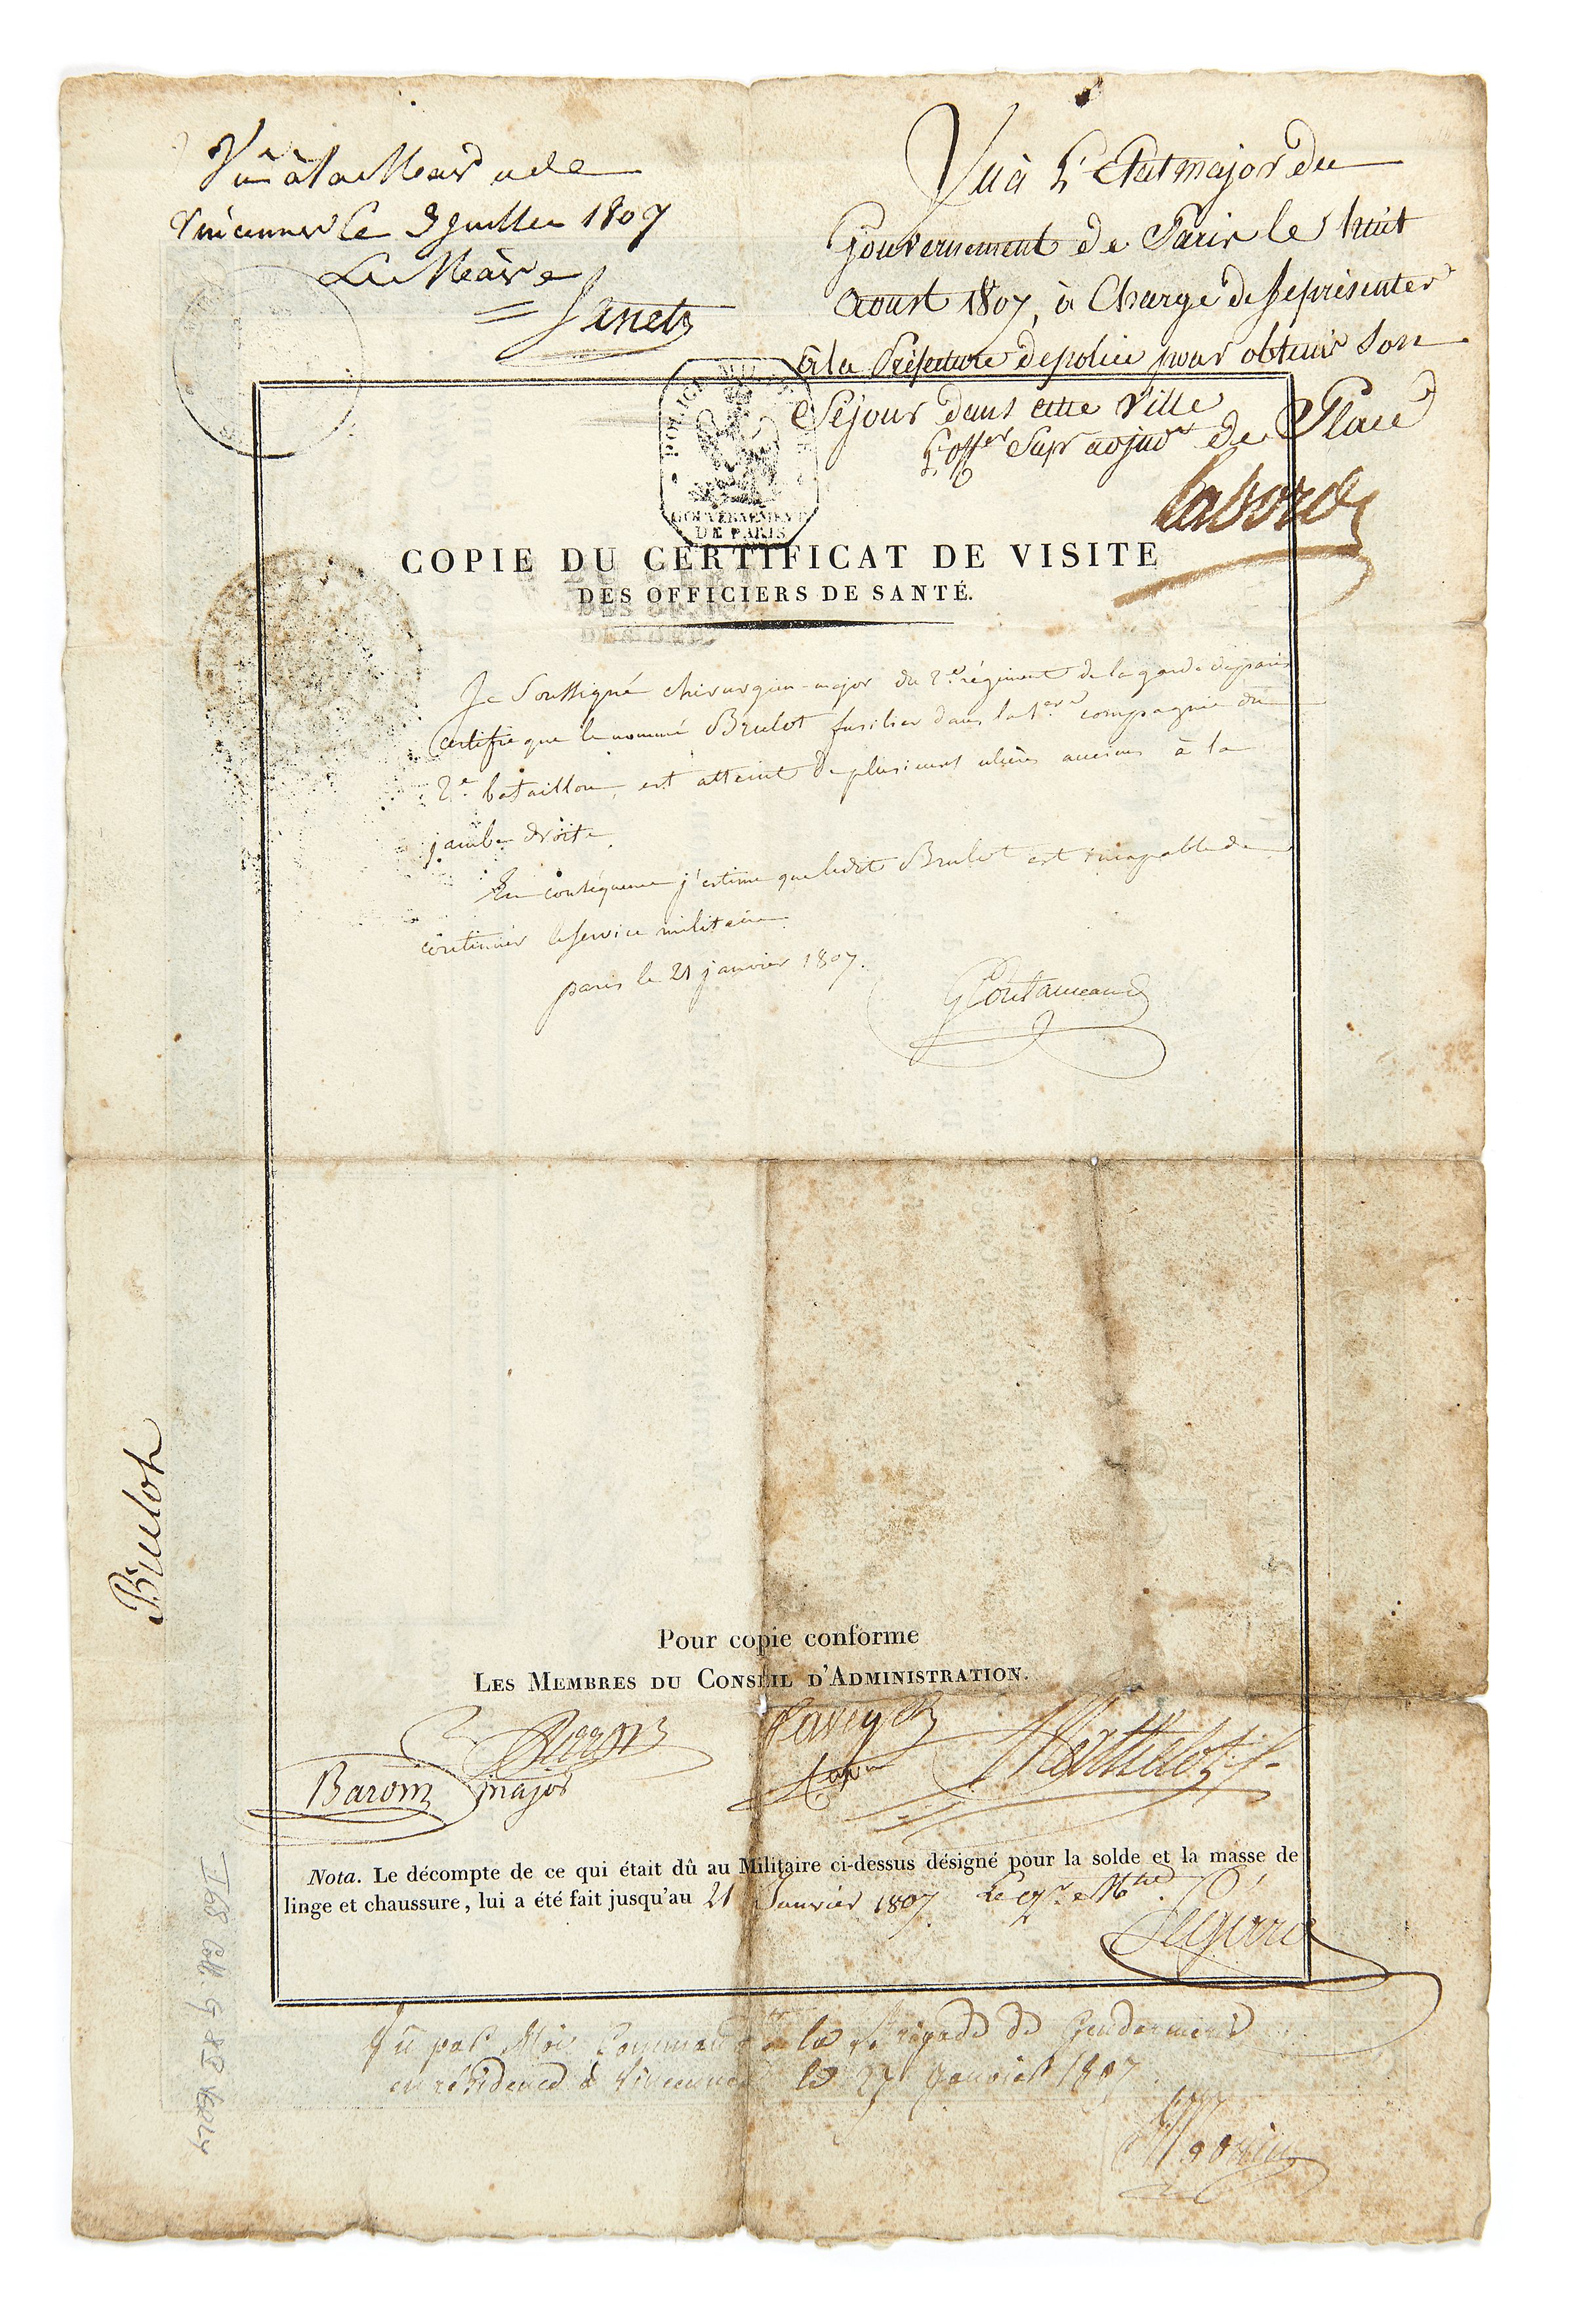 Vu à la Mairie de
Vincennes le 3 juillet 1807
Le Maire
Vu à L'Etat major du
Gouvernement de Paris le huit
Aoust 1807, à Charge de se présenter
à la Préfecture de police pour obtenir son
Séjour dans cette Ville
L'offer Supr adjud de Place
Laborde
POLICE
GOUVERNEMENT
DE PARIS
COPIE DU CERTIFICAT DE VISITE
DES OFFICIERS DE SANTÉ.
Je Soussigné chirurgien-major du 2e régiment de la garde de paris
certifie que le nommé Brulot fusilier dans la 1ere compagnie du
2e bataillon, est atteint de plusieurs ulcères anciens à la
jambe droite.
En conséquence j'estime que ledit Brulot est incapable de
continuer le service militaire.
paris le 21 janvier 1807.
Brulot
Pour copie conforme
LES MEMBRES DU CONSEIL D'ADMINISTRATION.
Baron major
Nota. Le décompte de ce qui était dû au Militaire ci-dessus désigné pour la solde et la masse de
linge et chaussure, lui a été fait jusqu'au 21 Janvier 1807. Le qr Mtre
Vu par Moi Commandt la Brigade de Gendarmerie
en résidence à Vincennes le 27 Janvier 1807